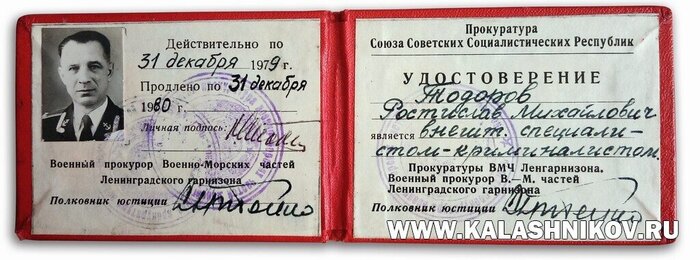 Действительно по
31 декабря 1979 г.
Продлено по 31 декабря
1980 г.
Личная подпись:
Военный прокурор Военно-Морских частей
Ленинградского гарнизона
Полковник юстиции
Прокуратура
Союза Советских Социалистических Республик
УДОСТОВЕРЕНИЕ
Тодоров
Ростислав Михайлович
является внешт. специали-
стом-криминалистом.
Прокуратуры ВМЧ Ленгарнизона.
Военный прокурор В.—М. частей
Ленинградского гарнизона
Полковник юстиции
WWW.KALASHNIKOV.RU